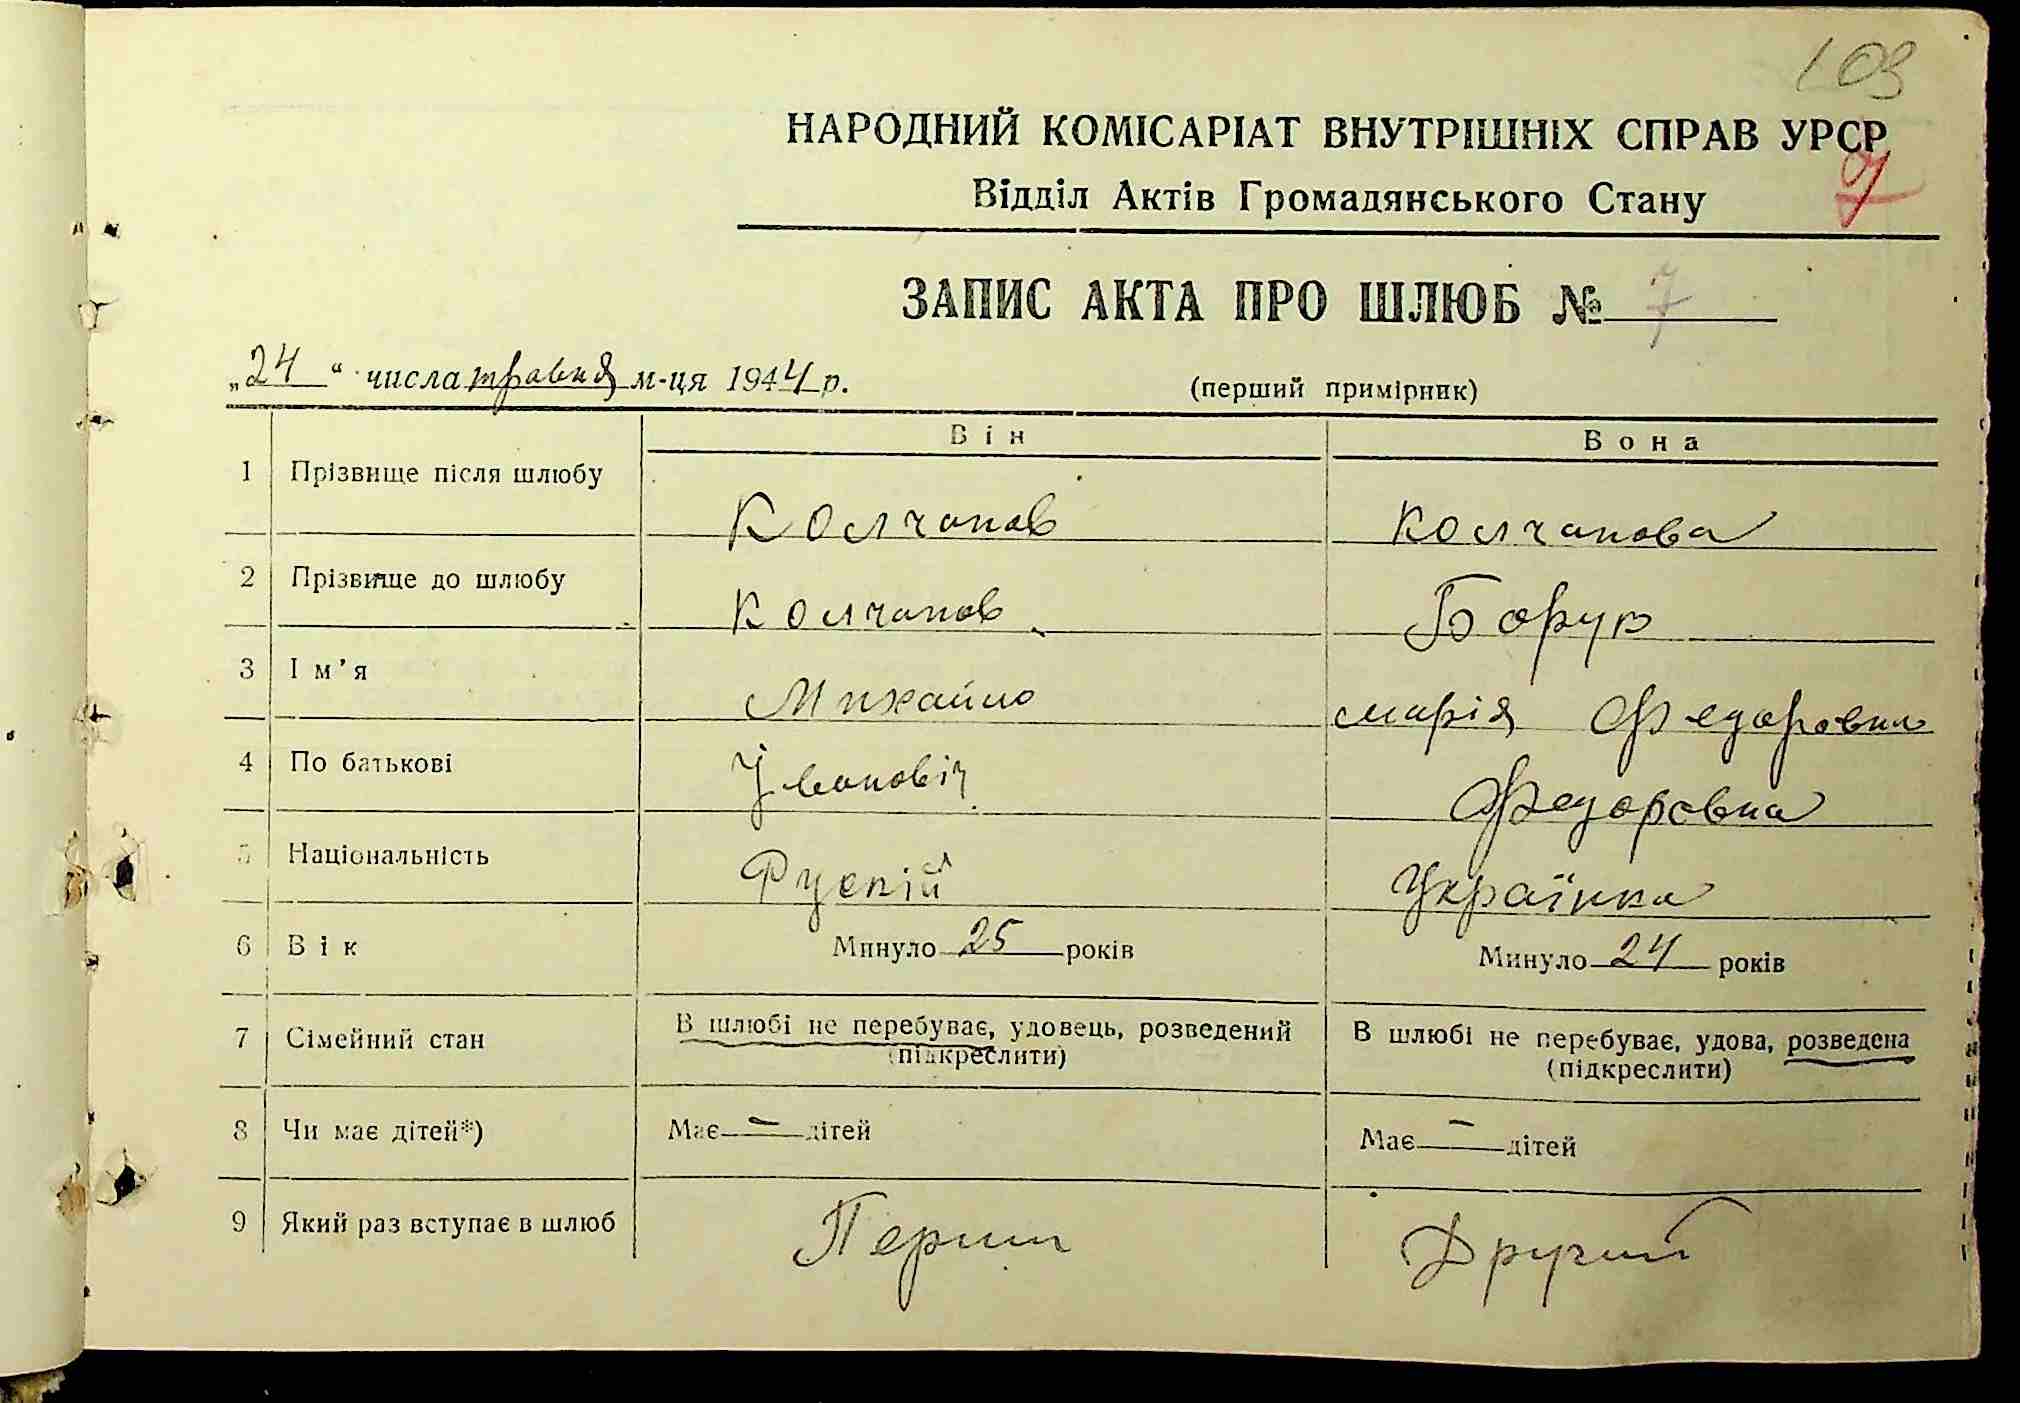 109
НАРОДНИЙ КОМІСАРІАТ ВНУТРІШНІХ СПРАВ УРСР
Відділ Актів Громадянського Стану
ЗАПИС АКТА ПРО ШЛЮБ № 7
„24“ числа травня м-ця 1944 р. (перший примірник)
Він Вона
1 Прізвище після шлюбу Колчанов Колчанова
2 Прізвище до шлюбу Колчанов Борук
3 Ім’я Михайло марія Федоровна
4 По батькові Івановіч Федоровна
5 Національність Руский Українка
6 Вік Минуло 25 років Минуло 24 років
7 Сімейний стан В шлюбі не перебуває, удовець, розведений В шлюбі не перебуває, удова, розведена
(підкреслити) (підкреслити)
8 Чи має дітей*) Має — дітей Має — дітей
9 Який раз вступає в шлюб Перший Другий